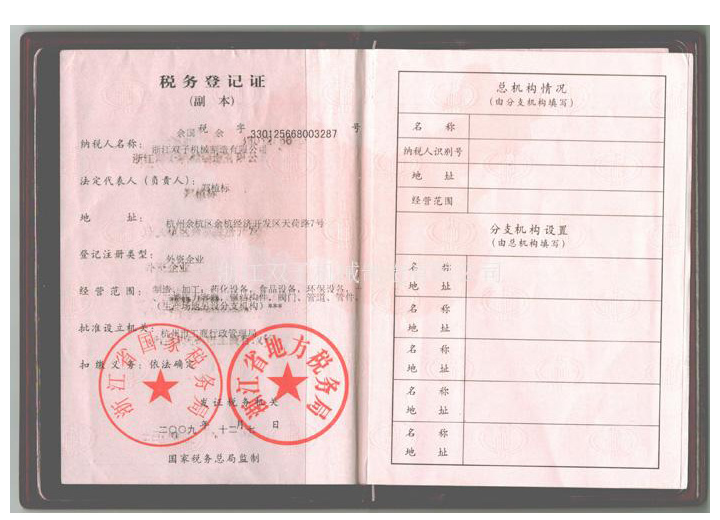 税务登记证
(副 本)
余国 税 余 字 330125668003287 号
纳税人名称：浙江双子机械制造有限公司
法定代表人（负责人）：植标
地 址：杭州余杭区余杭经济开发区天荷路7号
登记注册类型：外资企业
经营范围：制造、加工：药化设备，食品设备，环保设备，
阀门、管道、管件，
批准设立机关：杭州市工商行政管理局
扣缴义务：依法确定
浙江省国家税务局
浙江省地方税务局
发证税务机关
二〇〇九年 十二月 七日
国家税务总局监制
总机构情况
(由分支机构填写)
名 称
纳税人识别号
地 址
经营范围
分支机构设置
(由总机构填写)
名 称
地 址
名 称
地 址
名 称
地 址
名 称
地 址
名 称
地 址